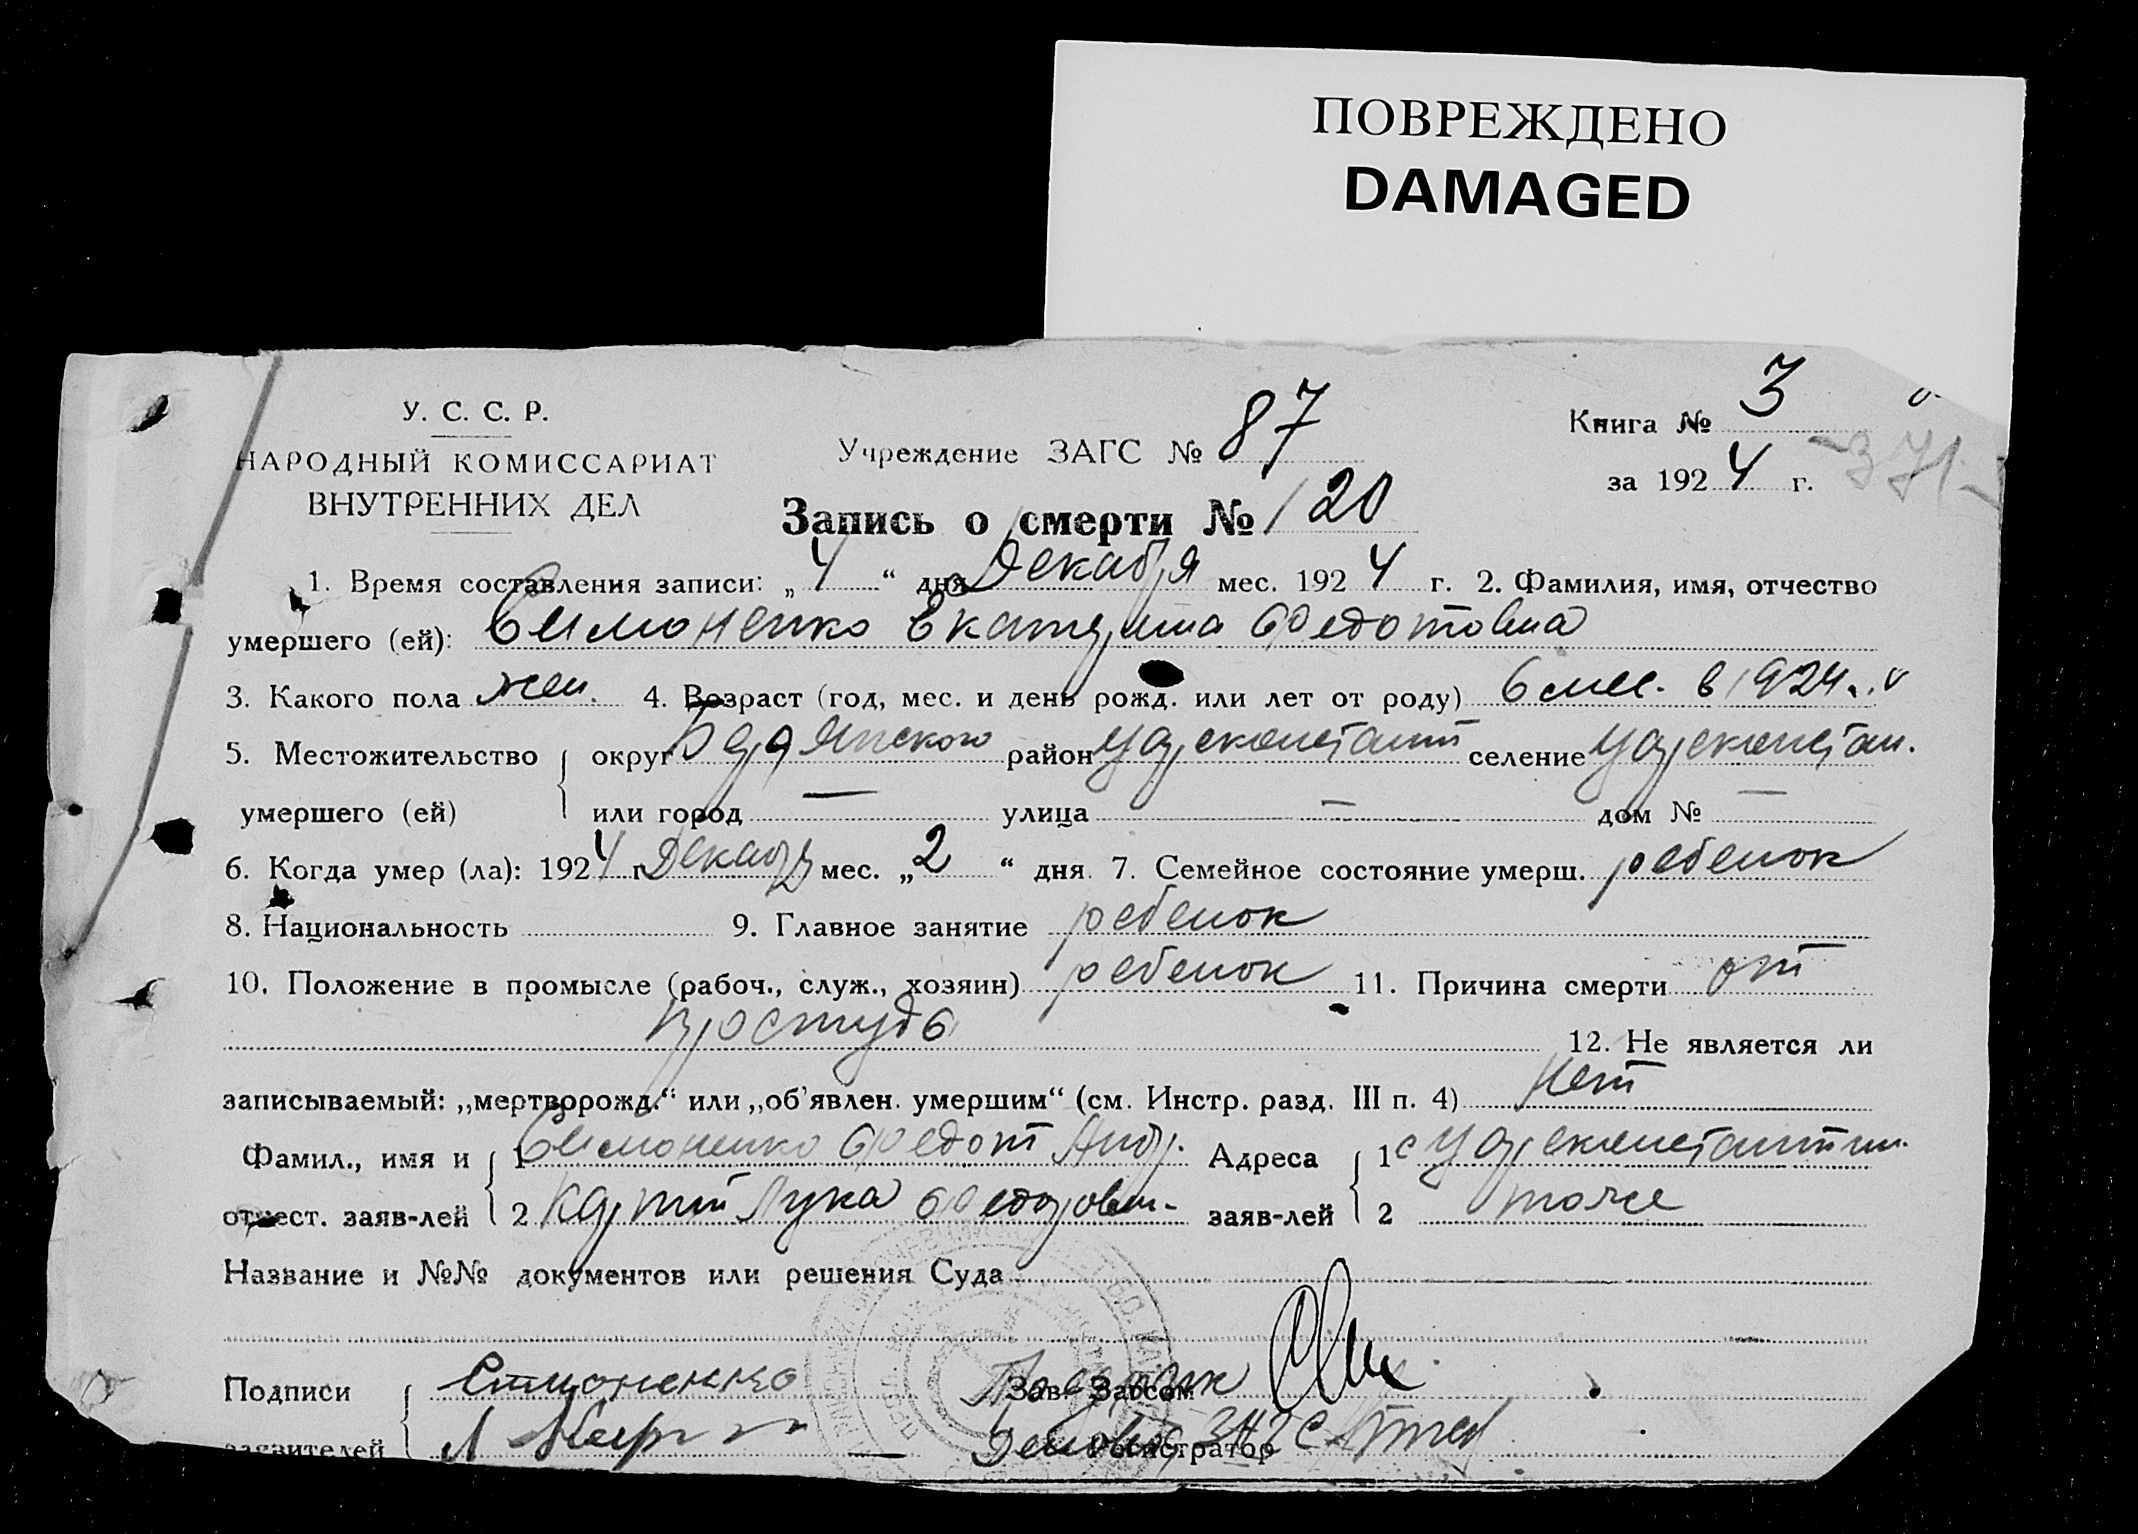 ПОВРЕЖДЕНО
DAMAGED
У. С. С. Р.
НАРОДНЫЙ КОМИССАРИАТ
ВНУТРЕННИХ ДЕЛ
Учреждение ЗАГС № 87
Книга № 3
за 1924 г.
371
Запись о смерти № 120
1. Время составления записи: „4“ дня Декабря мес. 1924 г. 2. Фамилия, имя, отчество
умершего (ей): Симоненко Екатерина Федотовна
3. Какого пола жен. 4. Возраст (год, мес. и день рожд. или лет от роду) 6 мес. в 1924 г.
5. Местожительство округ Бердянского район Цареконстант селение Цареконстан.
умершего (ей) или город — улица — дом № —
6. Когда умер (ла): 1924 г. Декабр мес. „2“ дня. 7. Семейное состояние умерш. ребенок
8. Национальность 9. Главное занятие ребенок
10. Положение в промысле (рабоч., служ., хозяин) ребенок 11. Причина смерти от
простуды 12. Не является ли
записываемый: „мертворожд.“ или „об'явлен. умершим“ (см. Инстр. разд. III п. 4) нет
Фамил., имя и 1 Симоненко Федот Андр. Адреса 1 с Цареконстантин.
отчест. заяв-лей 2 Лука заяв-лей 2 тоже
Название и №№ документов или решения Суда
Подписи Симоненко Зав. Загсом
заявителей Л Регистратор ЗАГС